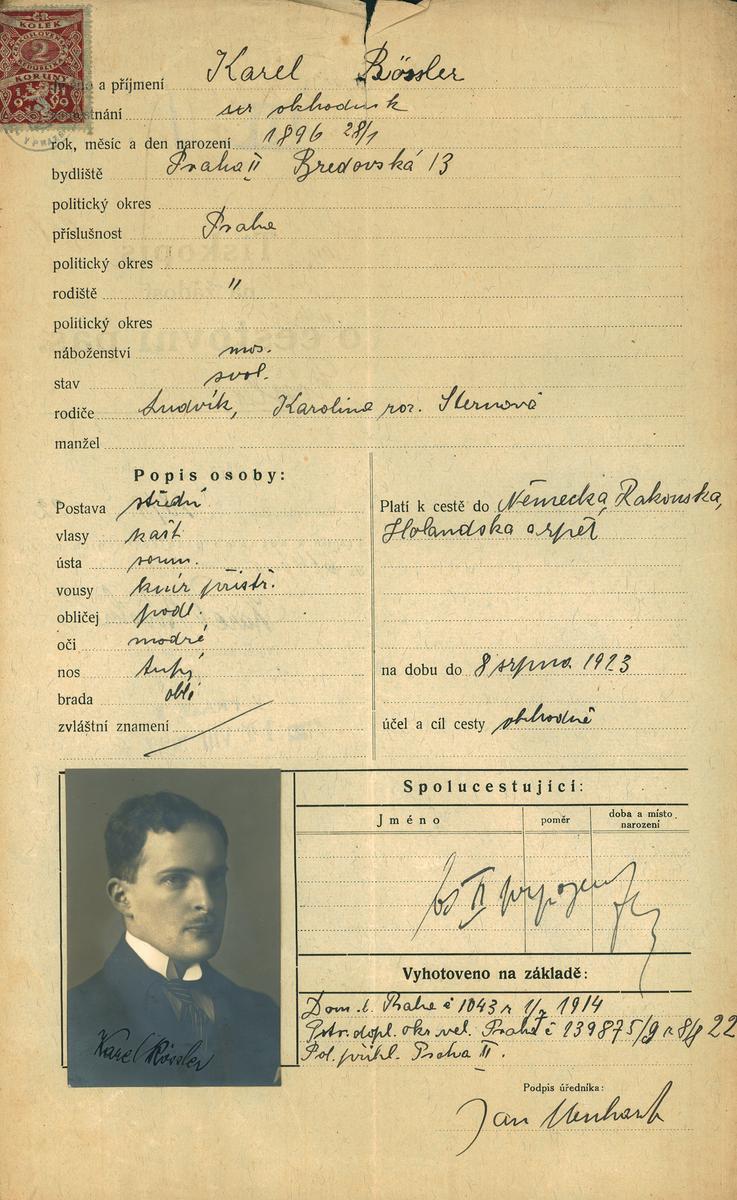 ČR
KOLEK
ČESKOSLOVENSKÁ
2
KORUNY
1919
V PRAZE
a příjmení Karel Rössler
obchodník
rok, měsíc a den narození 1896 28/1
bydliště Praha II Bredovská 13
politický okres
příslušnost Praha
politický okres
rodiště "
politický okres
náboženství mos.
stav svob.
rodiče Ludvík, Karolina roz. Sternová
manžel
Popis osoby:
Postava střední
vlasy kašt
ústa soum.
vousy knír přistř.
obličej podl.
oči modré
nos tupý
brada oblá
zvláštní znamení
Platí k cestě do Německa, Rakouska,
Holandska a zpět
na dobu do 8 srpna 1923
účel a cíl cesty obchodně
Spolucestující:
Jméno
poměr
doba a místo
narození
Karel Rössler
Vyhotoveno na základě:
Dom. l. Praha č 1043 z 1914
dopl. okr. vel. Praha č 139875/9 z 8/8 22
Pol. přihl. Praha II.
Podpis úředníka:
Jan